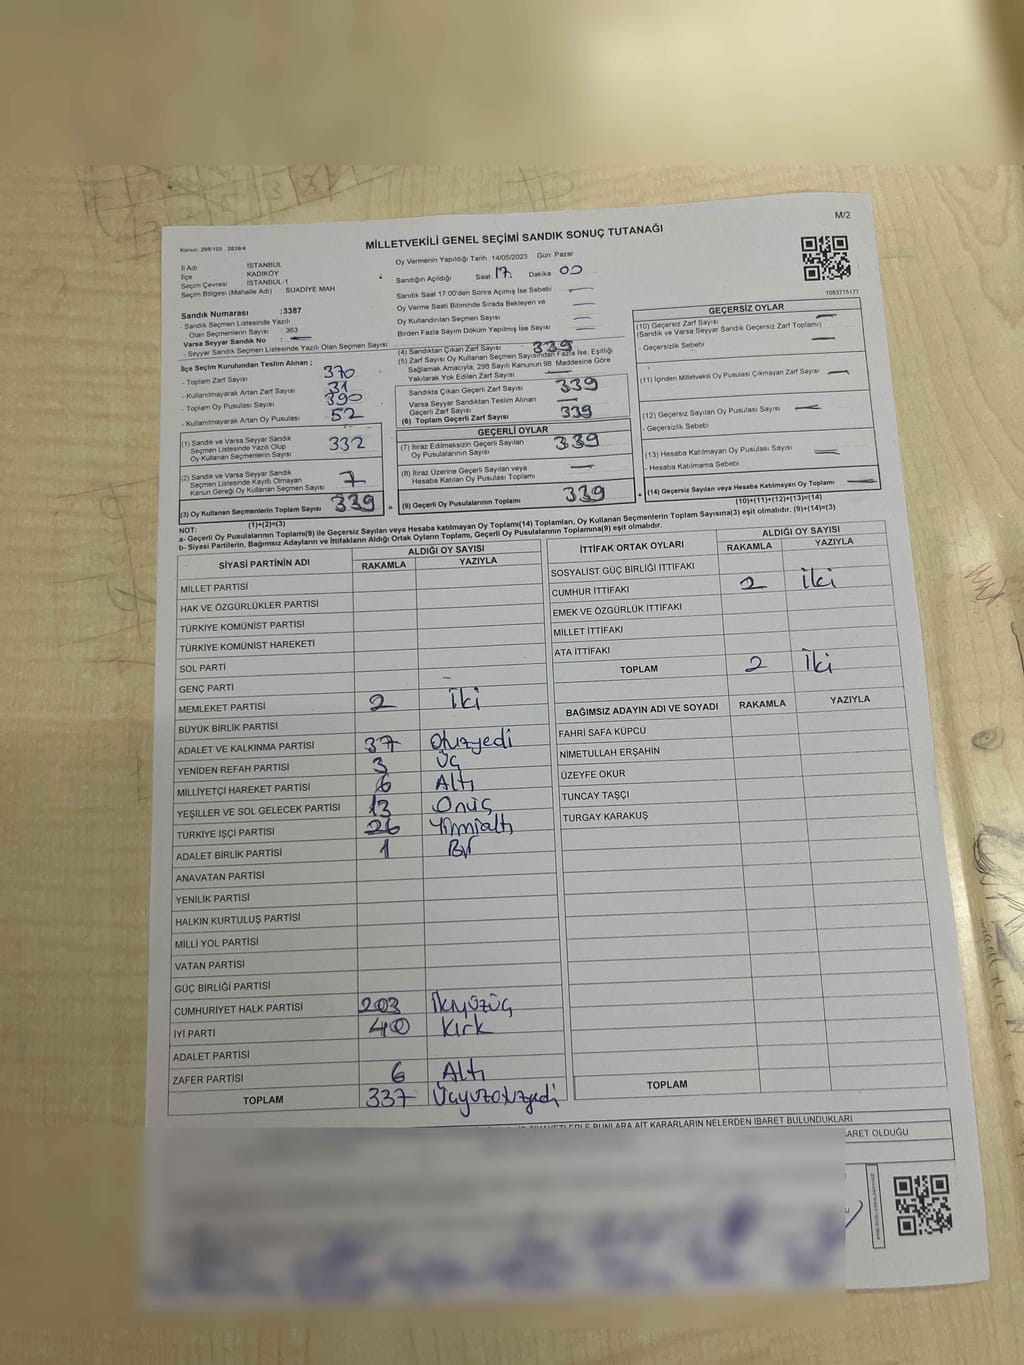 M/2
Kanun: 298/105 , 2839/4
MİLLETVEKİLİ GENEL SEÇİMİ SANDIK SONUÇ TUTANAĞI
İl Adı İSTANBUL
İlçe KADIKÖY
Seçim Çevresi İSTANBUL-1
Seçim Bölgesi (Mahalle Adı) SUADİYE MAH
Sandık Numarası :3387
- Sandık Seçmen Listesinde Yazılı
Olan Seçmenlerin Sayısı 363
Varsa Seyyar Sandık No : —
- Seyyar Sandık Seçmen Listesinde Yazılı Olan Seçmen Sayısı
Oy Vermenin Yapıldığı Tarih :14/05/2023 Gün: Pazar
Sandığın Açıldığı Saat 17. Dakika 00
Sandık Saat 17:00'den Sonra Açımış İse Sebebi —
Oy Verme Saati Bitiminde Sırada Bekleyen ve —
Oy Kullandırılan Seçmen Sayısı —
Birden Fazla Sayım Döküm Yapılmış İse Sayısı —
1083775177
İlçe Seçim Kurulundan Teslim Alınan ;
- Toplam Zarf Sayısı 370
- Kullanılmayarak Artan Zarf Sayısı 31
- Toplam Oy Pusulası Sayısı 390
- Kullanılmayarak Artan Oy Pusulası 52
(1) Sandık ve Varsa Seyyar Sandık
Seçmen Listesinde Yazılı Olup
Oy Kullanan Seçmenlerin Sayısı 332
(2) Sandık ve Varsa Seyyar Sandık
Seçmen Listesinde Kayıtlı Olmayan
Kanun Gereği Oy Kullanan Seçmen Sayısı 7
(3) Oy Kullanan Seçmenlerin Toplam Sayısı 339
(1)+(2)=(3)
(4) Sandıktan Çıkan Zarf Sayısı 339
(5) Zarf Sayısı Oy Kullanan Seçmen Sayısından Fazla İse, Eşitliği
Sağlamak Amacıyla, 298 Sayılı Kanunun 98. Maddesine Göre
Yakılarak Yok Edilen Zarf Sayısı —
Sandıkta Çıkan Geçerli Zarf Sayısı 339
Varsa Seyyar Sandıktan Teslim Alınan
Geçerli Zarf Sayısı —
(6) Toplam Geçerli Zarf Sayısı 339
GEÇERLİ OYLAR
(7) İtiraz Edilmeksizin Geçerli Sayılan
Oy Pusulalarının Sayısı 339
(8) İtiraz Üzerine Geçerli Sayılan veya
Hesaba Katılan Oy Pusulası Toplamı —
(9) Geçerli Oy Pusulalarının Toplamı 339
GEÇERSİZ OYLAR
(10) Geçersiz Zarf Sayısı —
(Sandık ve Varsa Seyyar Sandık Geçersiz Zarf Toplamı)
- Geçersizlik Sebebi —
(11) İçinden Milletvekili Oy Pusulası Çıkmayan Zarf Sayısı —
(12) Geçersiz Sayılan Oy Pusulası Sayısı —
- Geçersizlik Sebebi
(13) Hesaba Katılmayan Oy Pusulası Sayısı —
- Hesaba Katılmama Sebebi —
(14) Geçersiz Sayılan veya Hesaba Katılmayan Oy Toplamı —
(10)+(11)+(12)+(13)=(14)
NOT:
a- Geçerli Oy Pusulalarının Toplamı(9) ile Geçersiz Sayılan veya Hesaba katılmayan Oy Toplamı(14) Toplamları, Oy Kullanan Seçmenlerin Toplam Sayısına(3) eşit olmalıdır. (9)+(14)=(3)
b- Siyasi Partilerin, Bağımsız Adayların ve İttifakların Aldığı Ortak Oyların Toplamı, Geçerli Oy Pusulalarının Toplamına(9) eşit olmalıdır.
SİYASİ PARTİNİN ADI ALDIĞI OY SAYISI
RAKAMLA YAZIYLA
MİLLET PARTİSİ
HAK VE ÖZGÜRLÜKLER PARTİSİ
TÜRKİYE KOMÜNİST PARTİSİ
TÜRKİYE KOMÜNİST HAREKETİ
SOL PARTİ
GENÇ PARTİ
MEMLEKET PARTİSİ 2 İki
BÜYÜK BİRLİK PARTİSİ
ADALET VE KALKINMA PARTİSİ 37 Otuzyedi
YENİDEN REFAH PARTİSİ 3 Üç
MİLLİYETÇİ HAREKET PARTİSİ 6 Altı
YEŞİLLER VE SOL GELECEK PARTİSİ 13 Onüç
TÜRKİYE İŞÇİ PARTİSİ 26 Yirmialtı
ADALET BİRLİK PARTİSİ 1 Bir
ANAVATAN PARTİSİ
YENİLİK PARTİSİ
HALKIN KURTULUŞ PARTİSİ
MİLLİ YOL PARTİSİ
VATAN PARTİSİ
GÜÇ BİRLİĞİ PARTİSİ
CUMHURİYET HALK PARTİSİ 203 İkiyüzüç
İYİ PARTİ 40 Kırk
ADALET PARTİSİ
ZAFER PARTİSİ 6 Altı
TOPLAM 337 Üçyüzotuzyedi
İTTİFAK ORTAK OYLARI ALDIĞI OY SAYISI
RAKAMLA YAZIYLA
SOSYALİST GÜÇ BİRLİĞİ İTTİFAKI
CUMHUR İTTİFAKI 2 İki
EMEK VE ÖZGÜRLÜK İTTİFAKI
MİLLET İTTİFAKI
ATA İTTİFAKI
TOPLAM 2 İki
BAĞIMSIZ ADAYIN ADI VE SOYADI RAKAMLA YAZIYLA
FAHRİ SAFA KÜPCÜ
NİMETULLAH ERŞAHİN
ÜZEYFE OKUR
TUNCAY TAŞÇI
TURGAY KARAKUŞ
TOPLAM
BUNLARA AİT KARARLARIN NELERDEN İBARET BULUNDUKLARI
OLDUĞU